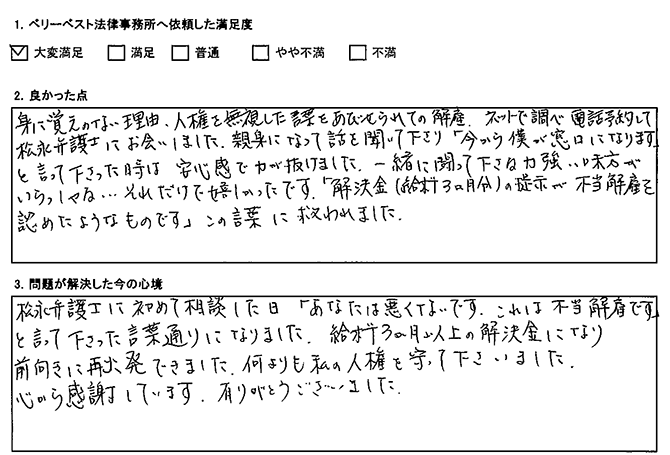 1. ベリーベスト法律事務所へ依頼した満足度
大変満足 満足 普通 やや不満 不満
2. 良かった点
身に覚えのない理由、人権を無視した言葉をあびせられての解雇。ネットで調べ電話予約して
松永弁護士にお会いしました。親身になって話を聞いて下さり「今から僕が窓口になります」
と言って下さった時は安心感で力が抜けました。一緒に闘って下さる力強い味方が
いらっしゃる…それだけで嬉しかったです。「解決金(給料3ヵ月分)の提示が不当解雇を
認めたようなものです」この言葉に救われました。
3. 問題が解決した今の心境
松永弁護士に初めて相談した日「あなたは悪くないです。これは不当解雇です」
と言って下さった言葉通りになりました。給料3ヵ月以上の解決金になり
前向きに再出発できました。何よりも私の人権を守って下さいました。
心から感謝しています。有りがとうございました。